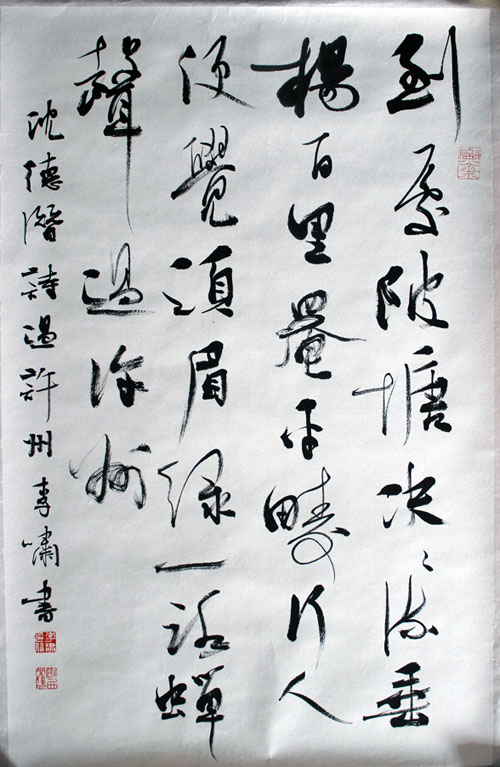 到處陂塘决〻流垂
楊百里罨平疇行人
便覺須眉綠一路蟬
聲過許州
沈德潛詩過許州李嘯書